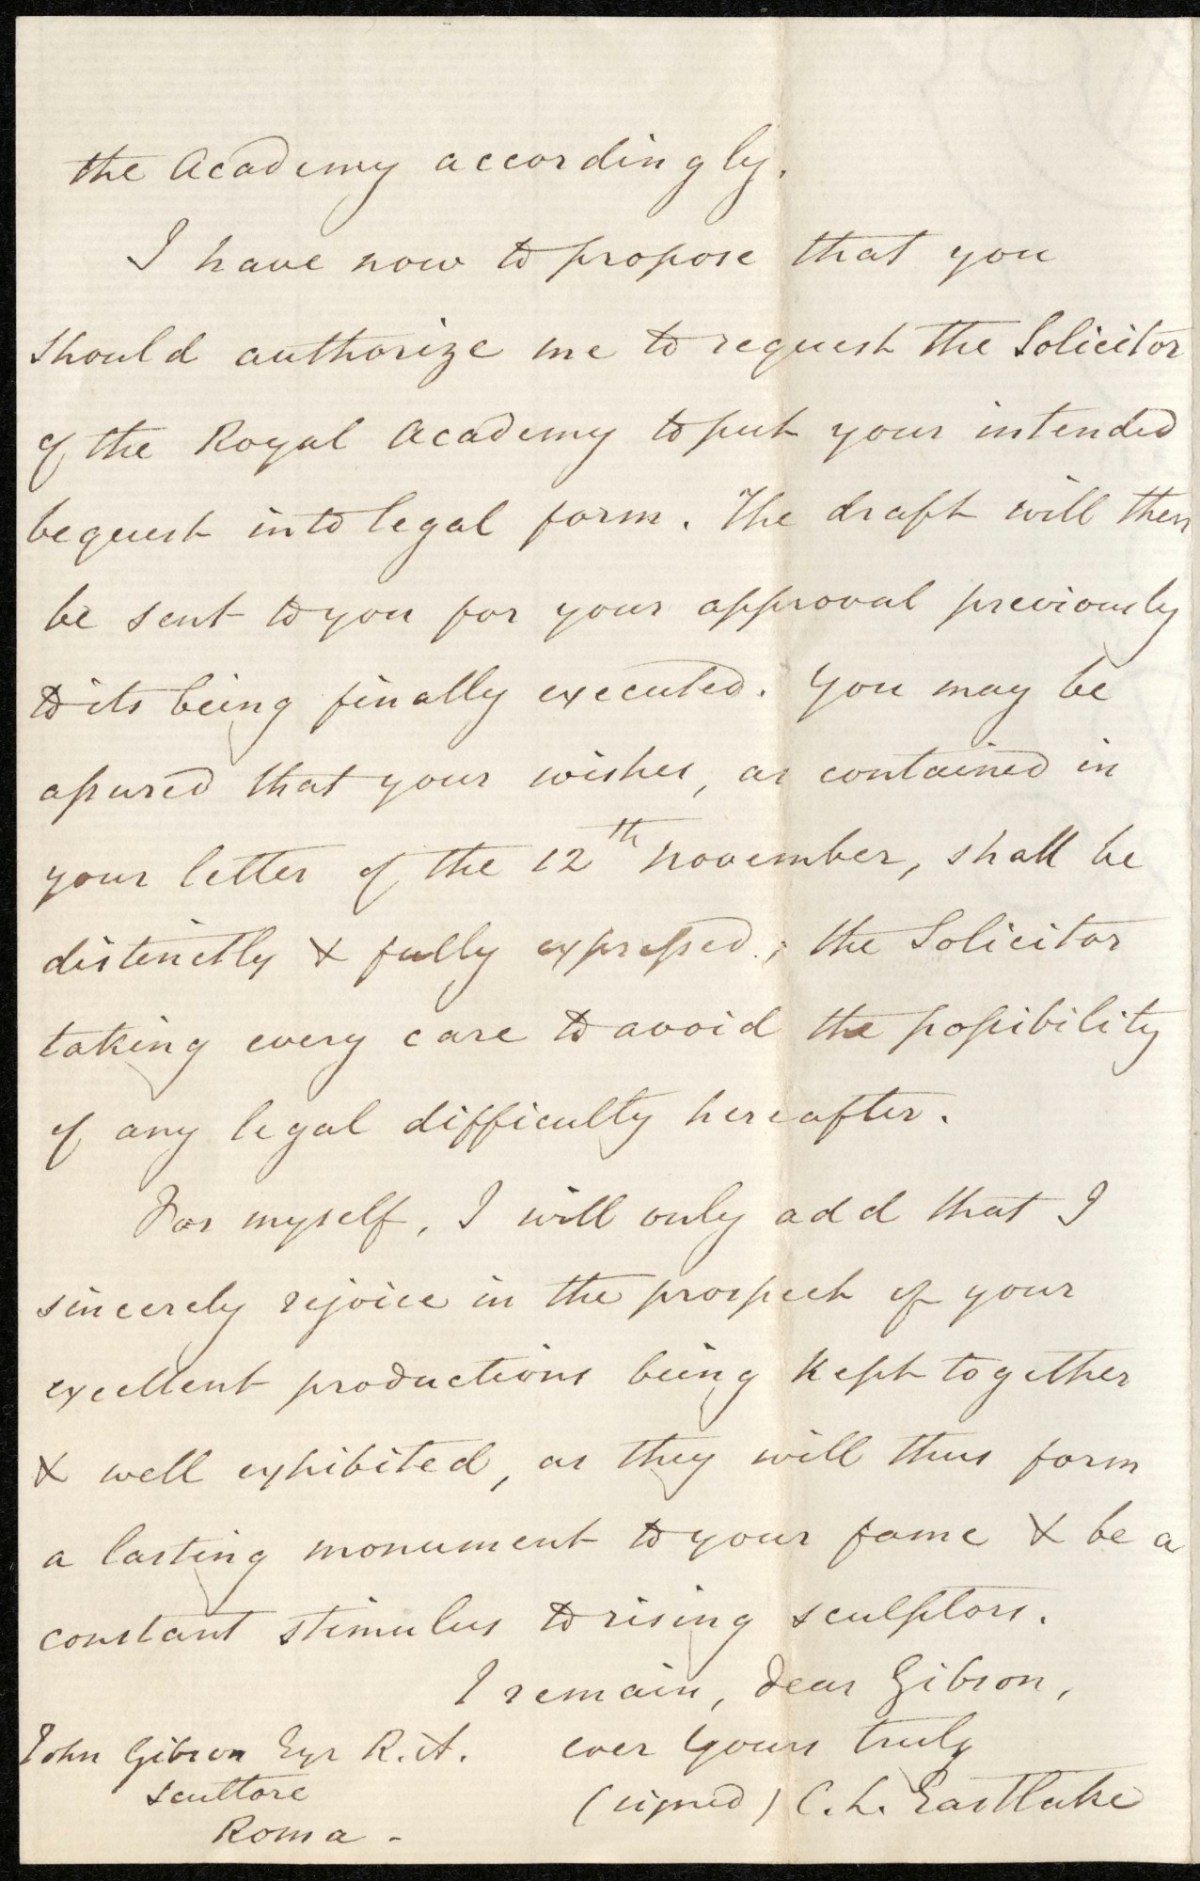 the Academy accordingly.
I have now to propose that you
should authorize me to request the Solicitor
of the Royal Academy to put your intended
bequest into legal form. The draft will then
be sent to you for your approval previously
to its being finally executed. You may be
assured that your wishes, as contained in
your letter of the 12th November, shall be
distinctly & fully expressed; the Solicitor
taking every care to avoid the possibility
of any legal difficulty hereafter.
For myself, I will only add that I
sincerely rejoice in the prospect of your
excellent productions being kept together
& well exhibited, as they will thus form
a lasting monument to your fame & be a
constant stimulus to rising sculptors.
I remain, dear Gibson,
ever yours truly
(signed) C. L. Eastlake
John Gibson Esqr R.A.
scultore
Roma -